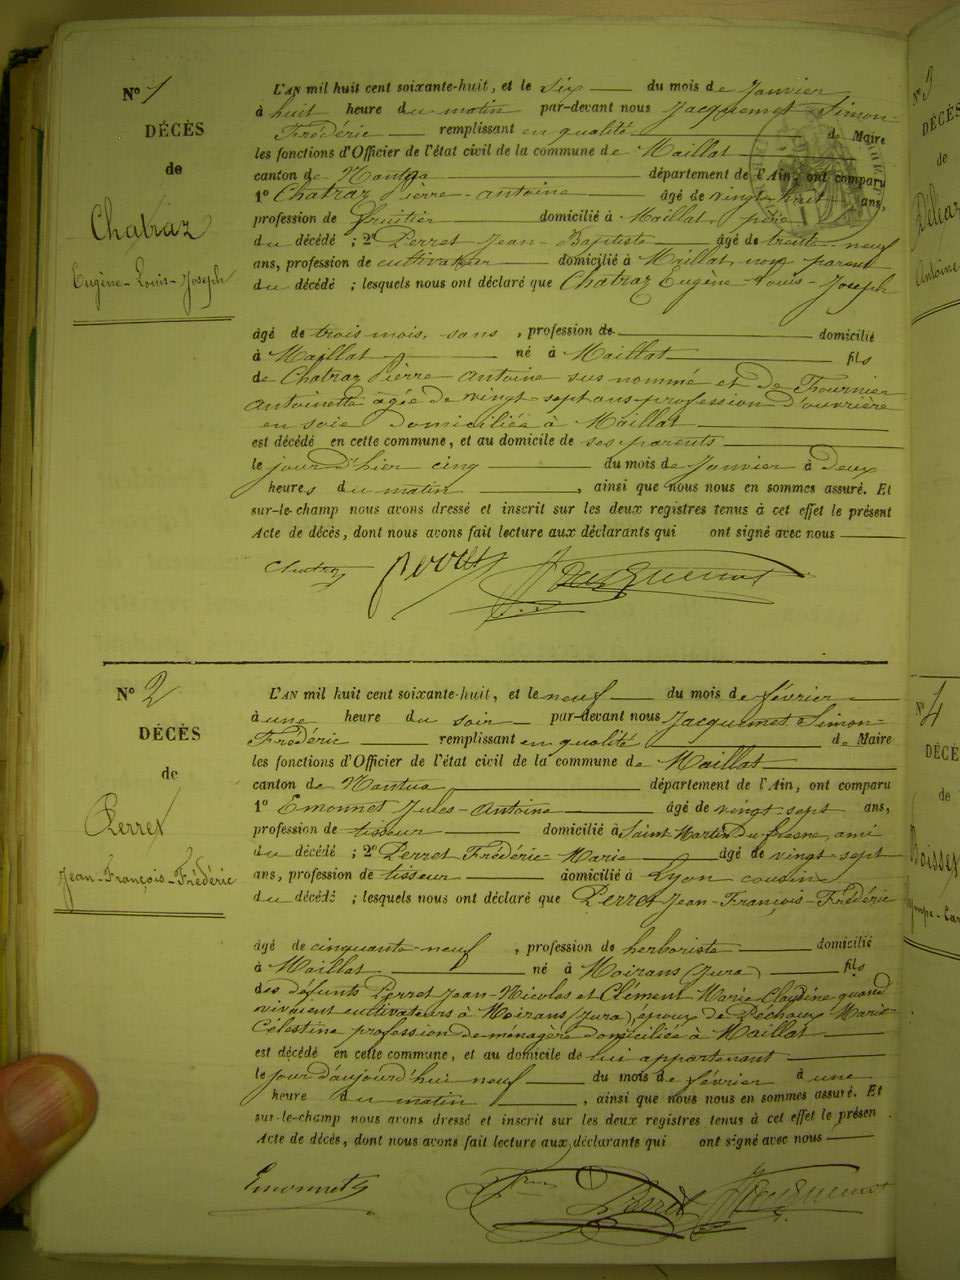 N° 1
DÉCÈS
de
Chatraz
Eugène-Louis-Joseph
L'AN mil huit cent soixante-huit, et le Six du mois de Janvier
à huit heure du matin par-devant nous Jacquemet Simon-
Frédéric remplissant en qualité de Maire
les fonctions d'Officier de l'état civil de la commune de Maillat
canton de Nantua département de l'Ain, ont comparu
1° Chatraz Pierre-Antoine âgé de vingt-huit ans,
profession de fruitier domicilié à Maillat, père
du décédé ; 2° Perret Jean-Baptiste âgé de trente-neuf
ans, profession de cultivateur domicilié à Maillat, non parent
du décédé ; lesquels nous ont déclaré que Chatraz Eugène-Louis-Joseph
âgé de trois mois, sans , profession de domicilié
à Maillat né à Maillat fils
de Chatraz Pierre Antoine sus nommé et de Fournier
Antoinette âgée de vingt-sept ans profession d'ouvrière
en soie domiciliée à Maillat
est décédé en cette commune, et au domicile de ses parents
le jour d'hier cinq du mois de Janvier à deux
heures du matin , ainsi que nous nous en sommes assuré. Et
sur-le-champ nous avons dressé et inscrit sur les deux registres tenus à cet effet le présent
Acte de décès, dont nous avons fait lecture aux déclarants qui ont signé avec nous
Chatraz Perret Jacquemet
N° 2
DÉCÈS
de
Perret
Jean-François-Frédéric
L'AN mil huit cent soixante-huit, et le neuf du mois de février
à une heure du soir par-devant nous Jacquemet Simon-
Frédéric remplissant en qualité de Maire
les fonctions d'Officier de l'état civil de la commune de Maillat
canton de Nantua département de l'Ain, ont comparu
1° Emonnet Jules-Antoine âgé de vingt-sept ans,
profession de tisseur domicilié à Saint Martin du fresne, ami
du décédé ; 2° Perret Frédéric-Marie âgé de vingt-sept
ans, profession de tisseur domicilié à Lyon cousin
du décédé ; lesquels nous ont déclaré que Perret Jean-François-Frédéric
âgé de cinquante-neuf , profession de herboriste domicilié
à Maillat né à Moirans (Jura) fils
des défunts Perret Jean-Nicolas et Clément Marie Claudine quand
vivaient cultivateurs à Moirans (Jura), époux de Péchoux Marie-
Célestine profession de ménagère domiciliée à Maillat
est décédé en cette commune, et au domicile de lui appartenant
le jour d'aujourd'hui neuf du mois de février à une
heure du matin , ainsi que nous nous en sommes assuré. Et
sur-le-champ nous avons dressé et inscrit sur les deux registres tenus à cet effet le présen
Acte de décès, dont nous avons fait lecture aux déclarants qui ont signé avec nous
Emonnet Perret Jacquemet
N° 3
DÉCÈS
de
Antoine
N° 4
DÉCÈ
de